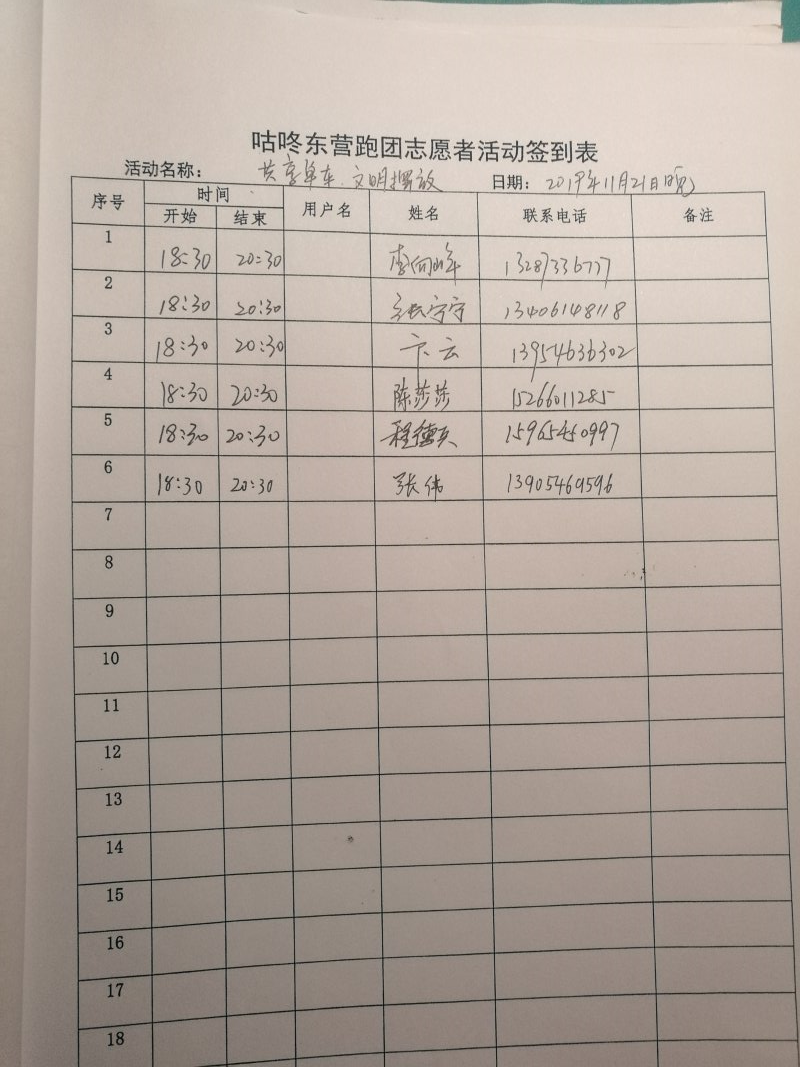 咕咚东营跑团志愿者活动签到表
活动名称： 共享单车、文明摆放 日期： 2019年11月21日晚
序号 时间 用户名 姓名 联系电话 备注
开始 结束
1 18:30 20:30 李向峰 13287336777
2 18:30 20:30 宁宁 13406148118
3 18:30 20:30 卞云 13954636302
4 18:30 20:30 陈莎莎 15266011285
5 18:30 20:30 程德兵 15965450997
6 18:30 20:30 张伟 13905469596
7
8
9
10
11
12
13
14
15
16
17
18